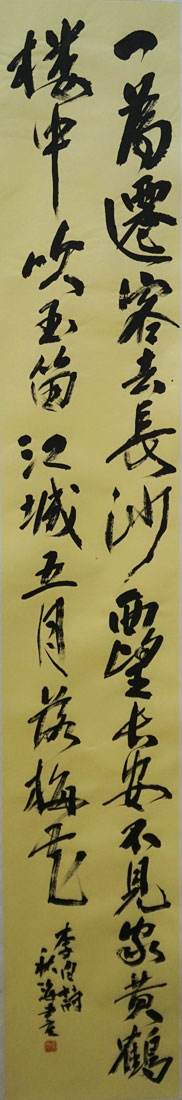 一為遷客去長沙西望长安不見家黄鶴
楼中吹玉笛江城五月落梅花
李白詩
秋海書